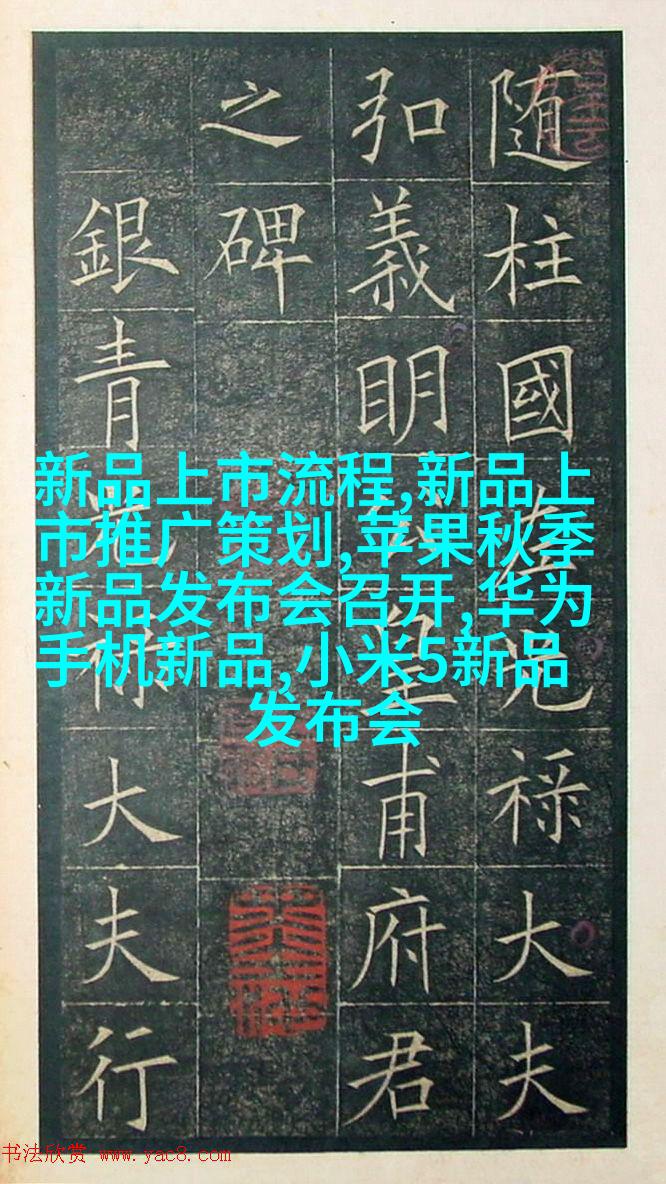 随柱國左光禄大夫
弘義明公皇甫府君
之碑
銀青光禄大夫行
新品上市流程,新品上
市推广策划,苹果秋季
新品发布会召开,华为
手机新品,小米5新品
发布会
书法欣赏 www.yac8.com